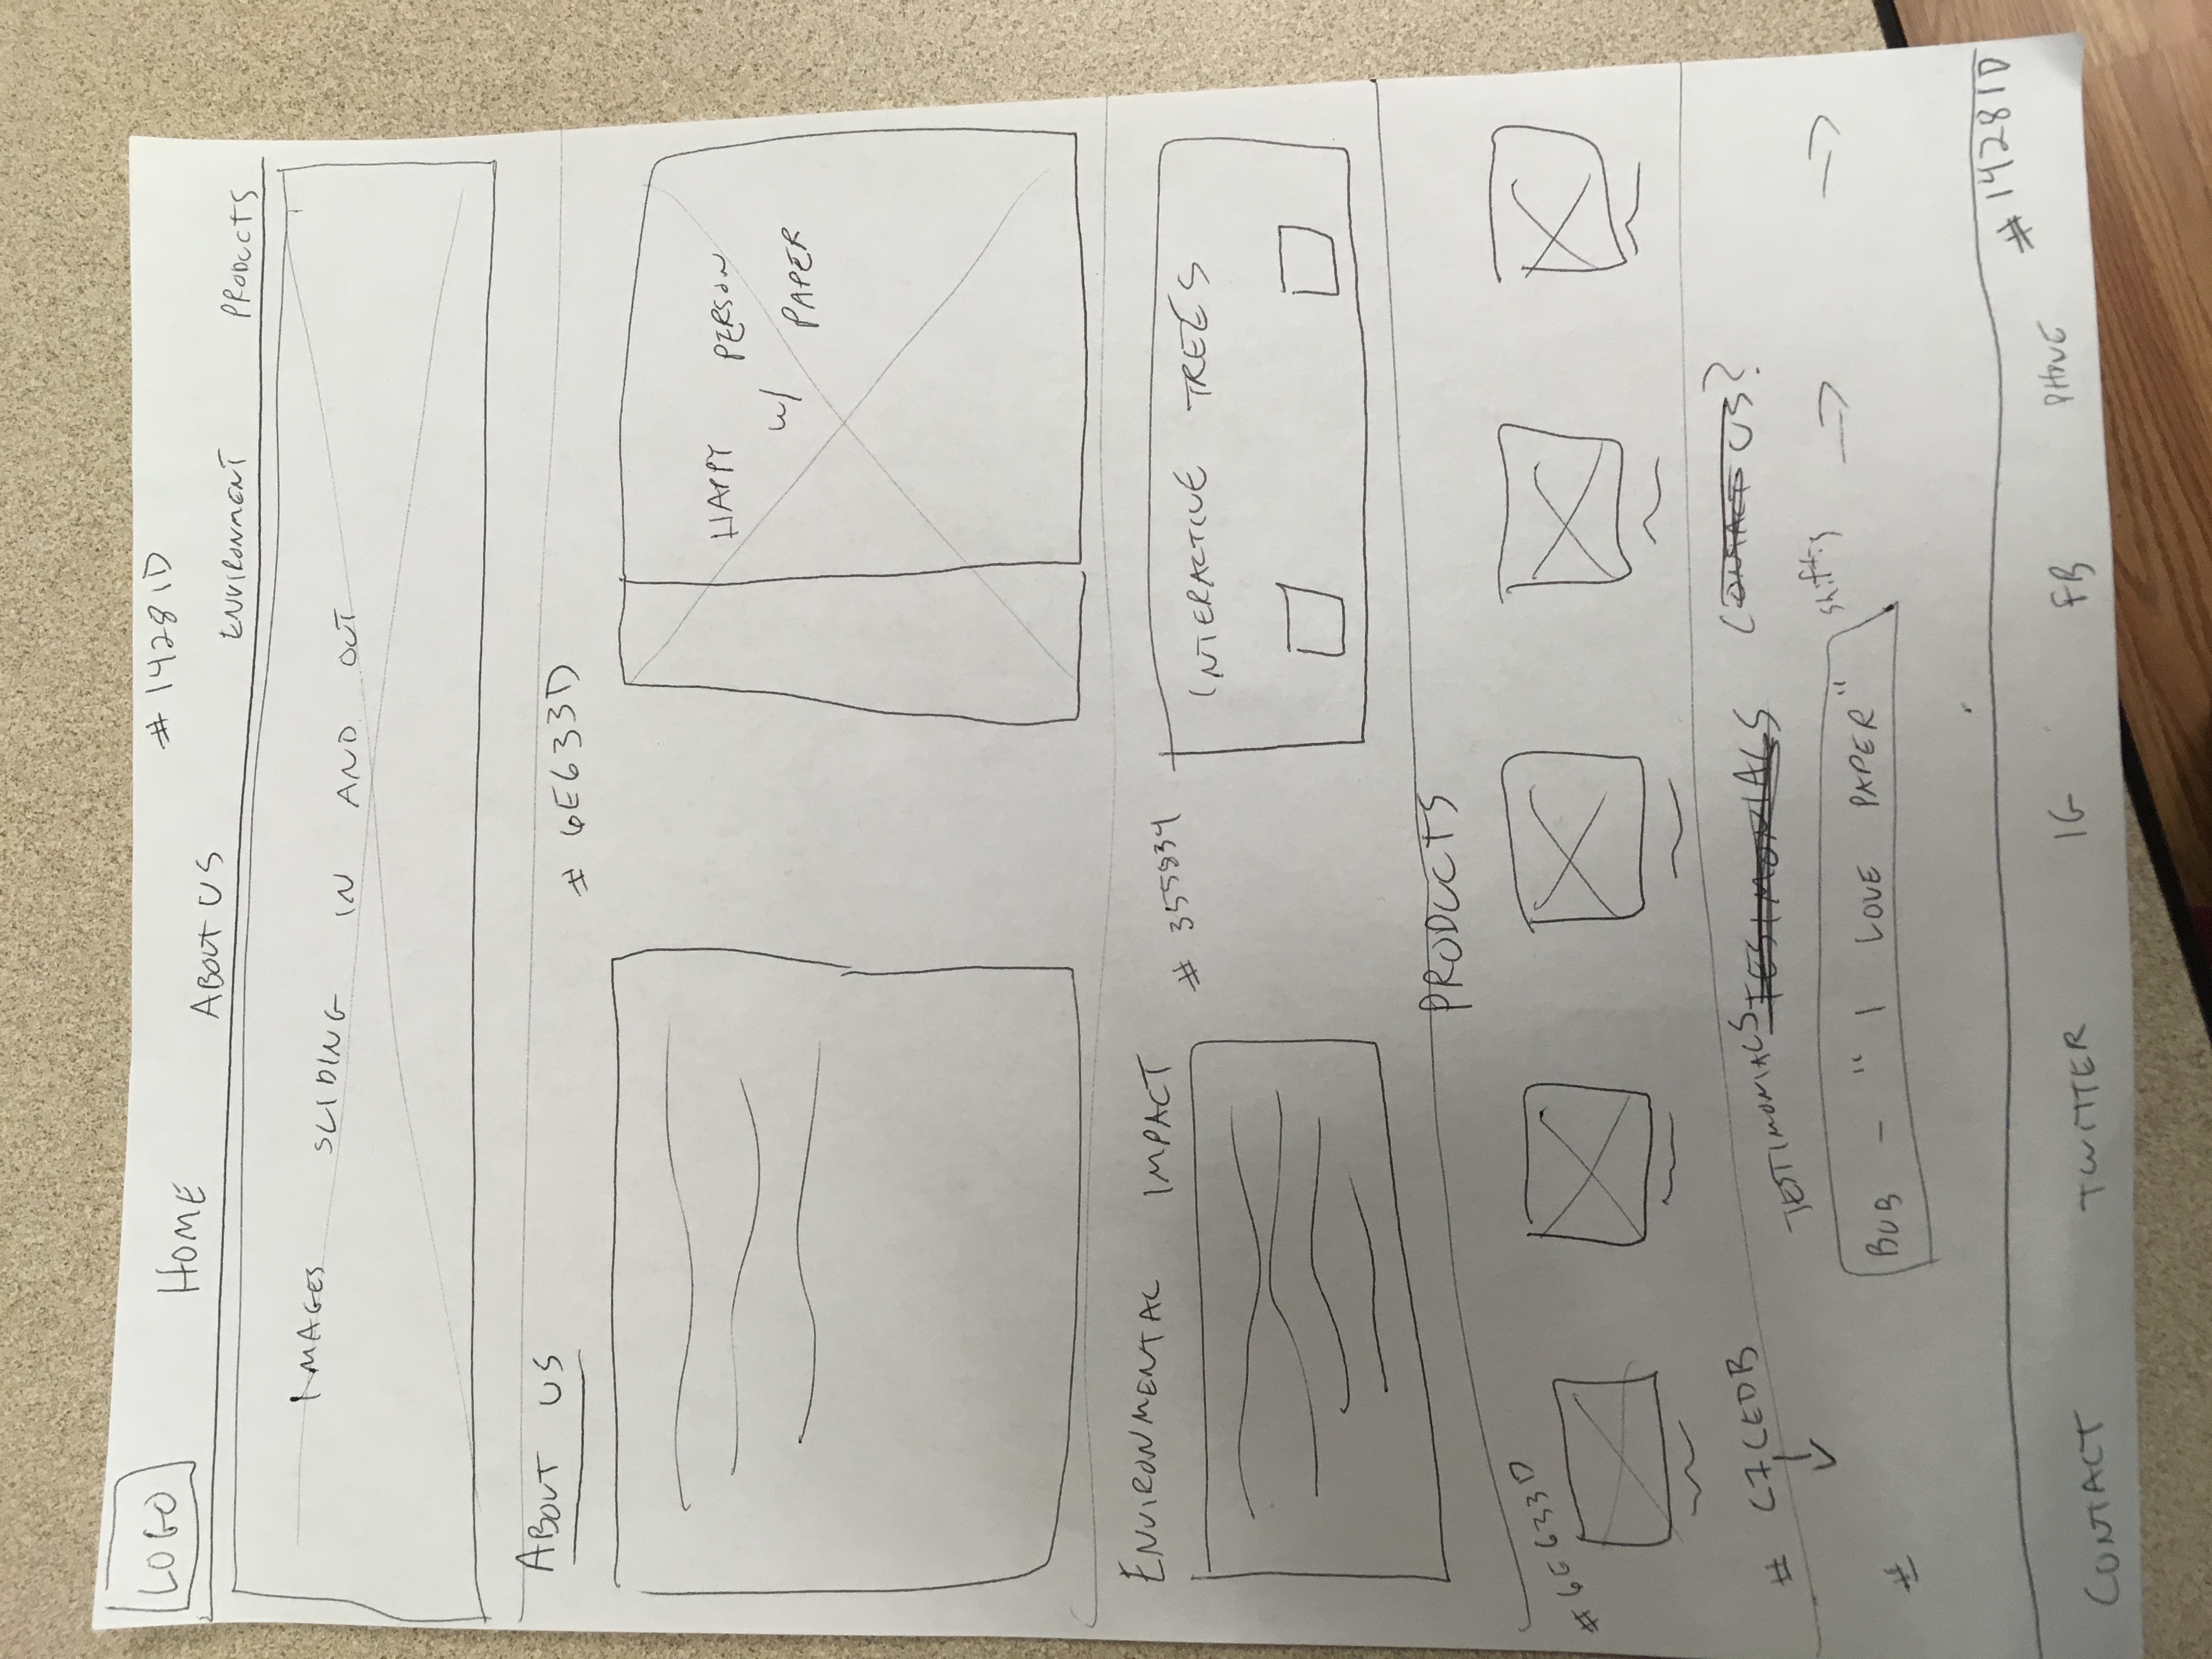 LOGO
HOME
ABOUT US
# 14281D
ENVIRONMENT
PRODUCTS
IMAGES SLIDING IN AND OUT
ABOUT US
# 6E633D
HAPPY PERSON
w/ PAPER
ENVIRONMENTAL IMPACT
# 355834
INTERACTIVE TREES
PRODUCTS
#6E633D
# C7CEDB
TESTIMONIALS TESTIMONIALS CONTACT US?
BUB - " I LOVE PAPER"
#
# 14281D
CONTACT TWITTER IG FB PHONE